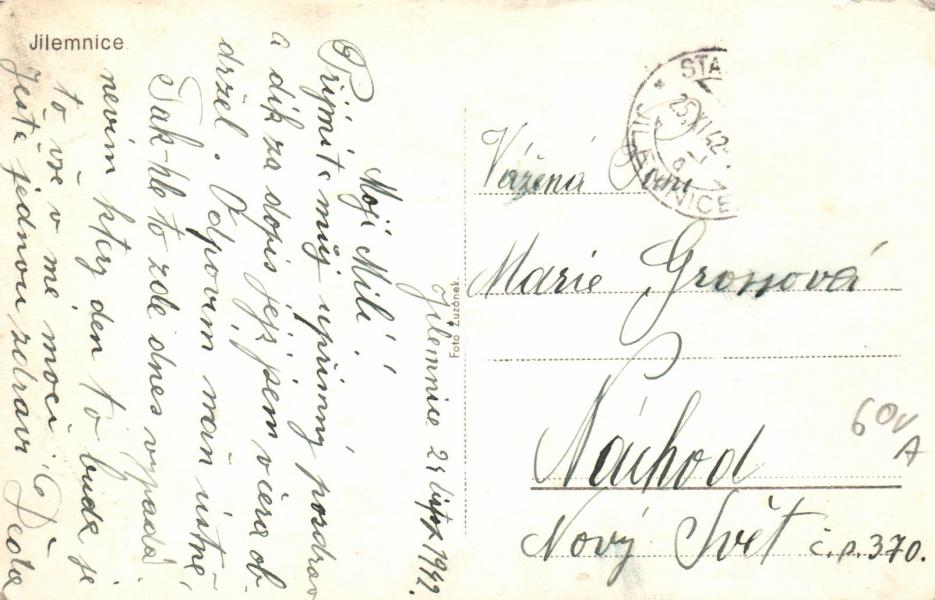 Jilemnice
Jilemnice 25 listop. 1942.
Moji Milí!
Přijmite můj upřímný pozdrav
a dík za dopis jejž jsem včera ob-
držel. Odpovim
Tak-hle to zde dnes vypadá
nevim ktery den to bude je
to vše v mé moci.
Ještě jednou zdraví Děda
Foto Zuzánek.
STA
25.XI.42
JILEMNICE
Vážená Paní
Marie Grossová
Náchod
Nový Svět č.p.370.
60v
A